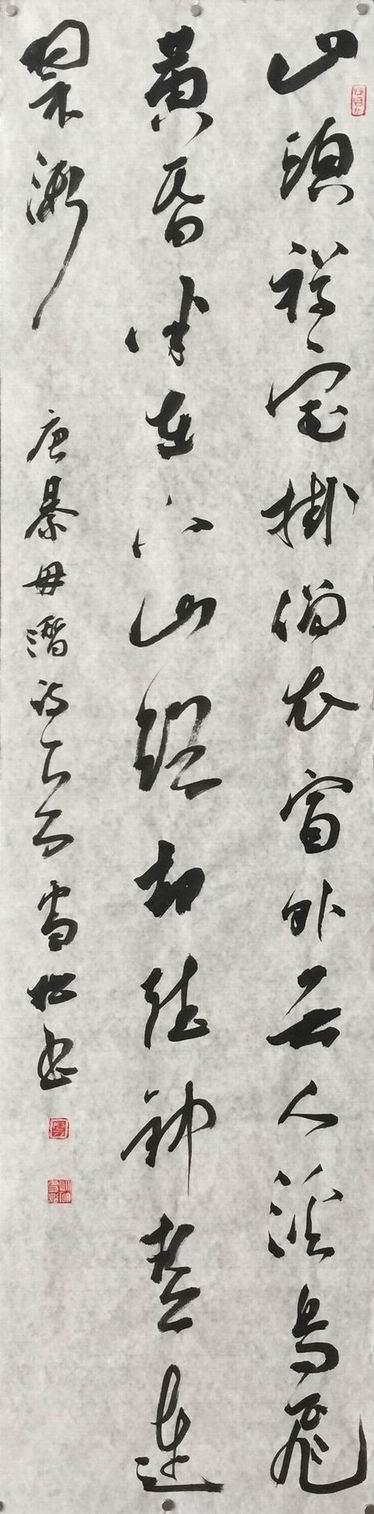 山頭禪室掛僧衣窗外無人溪鳥飛
黃昏半在下山路却聽鐘聲連
翠微
唐綦毋潛詩 雪松書